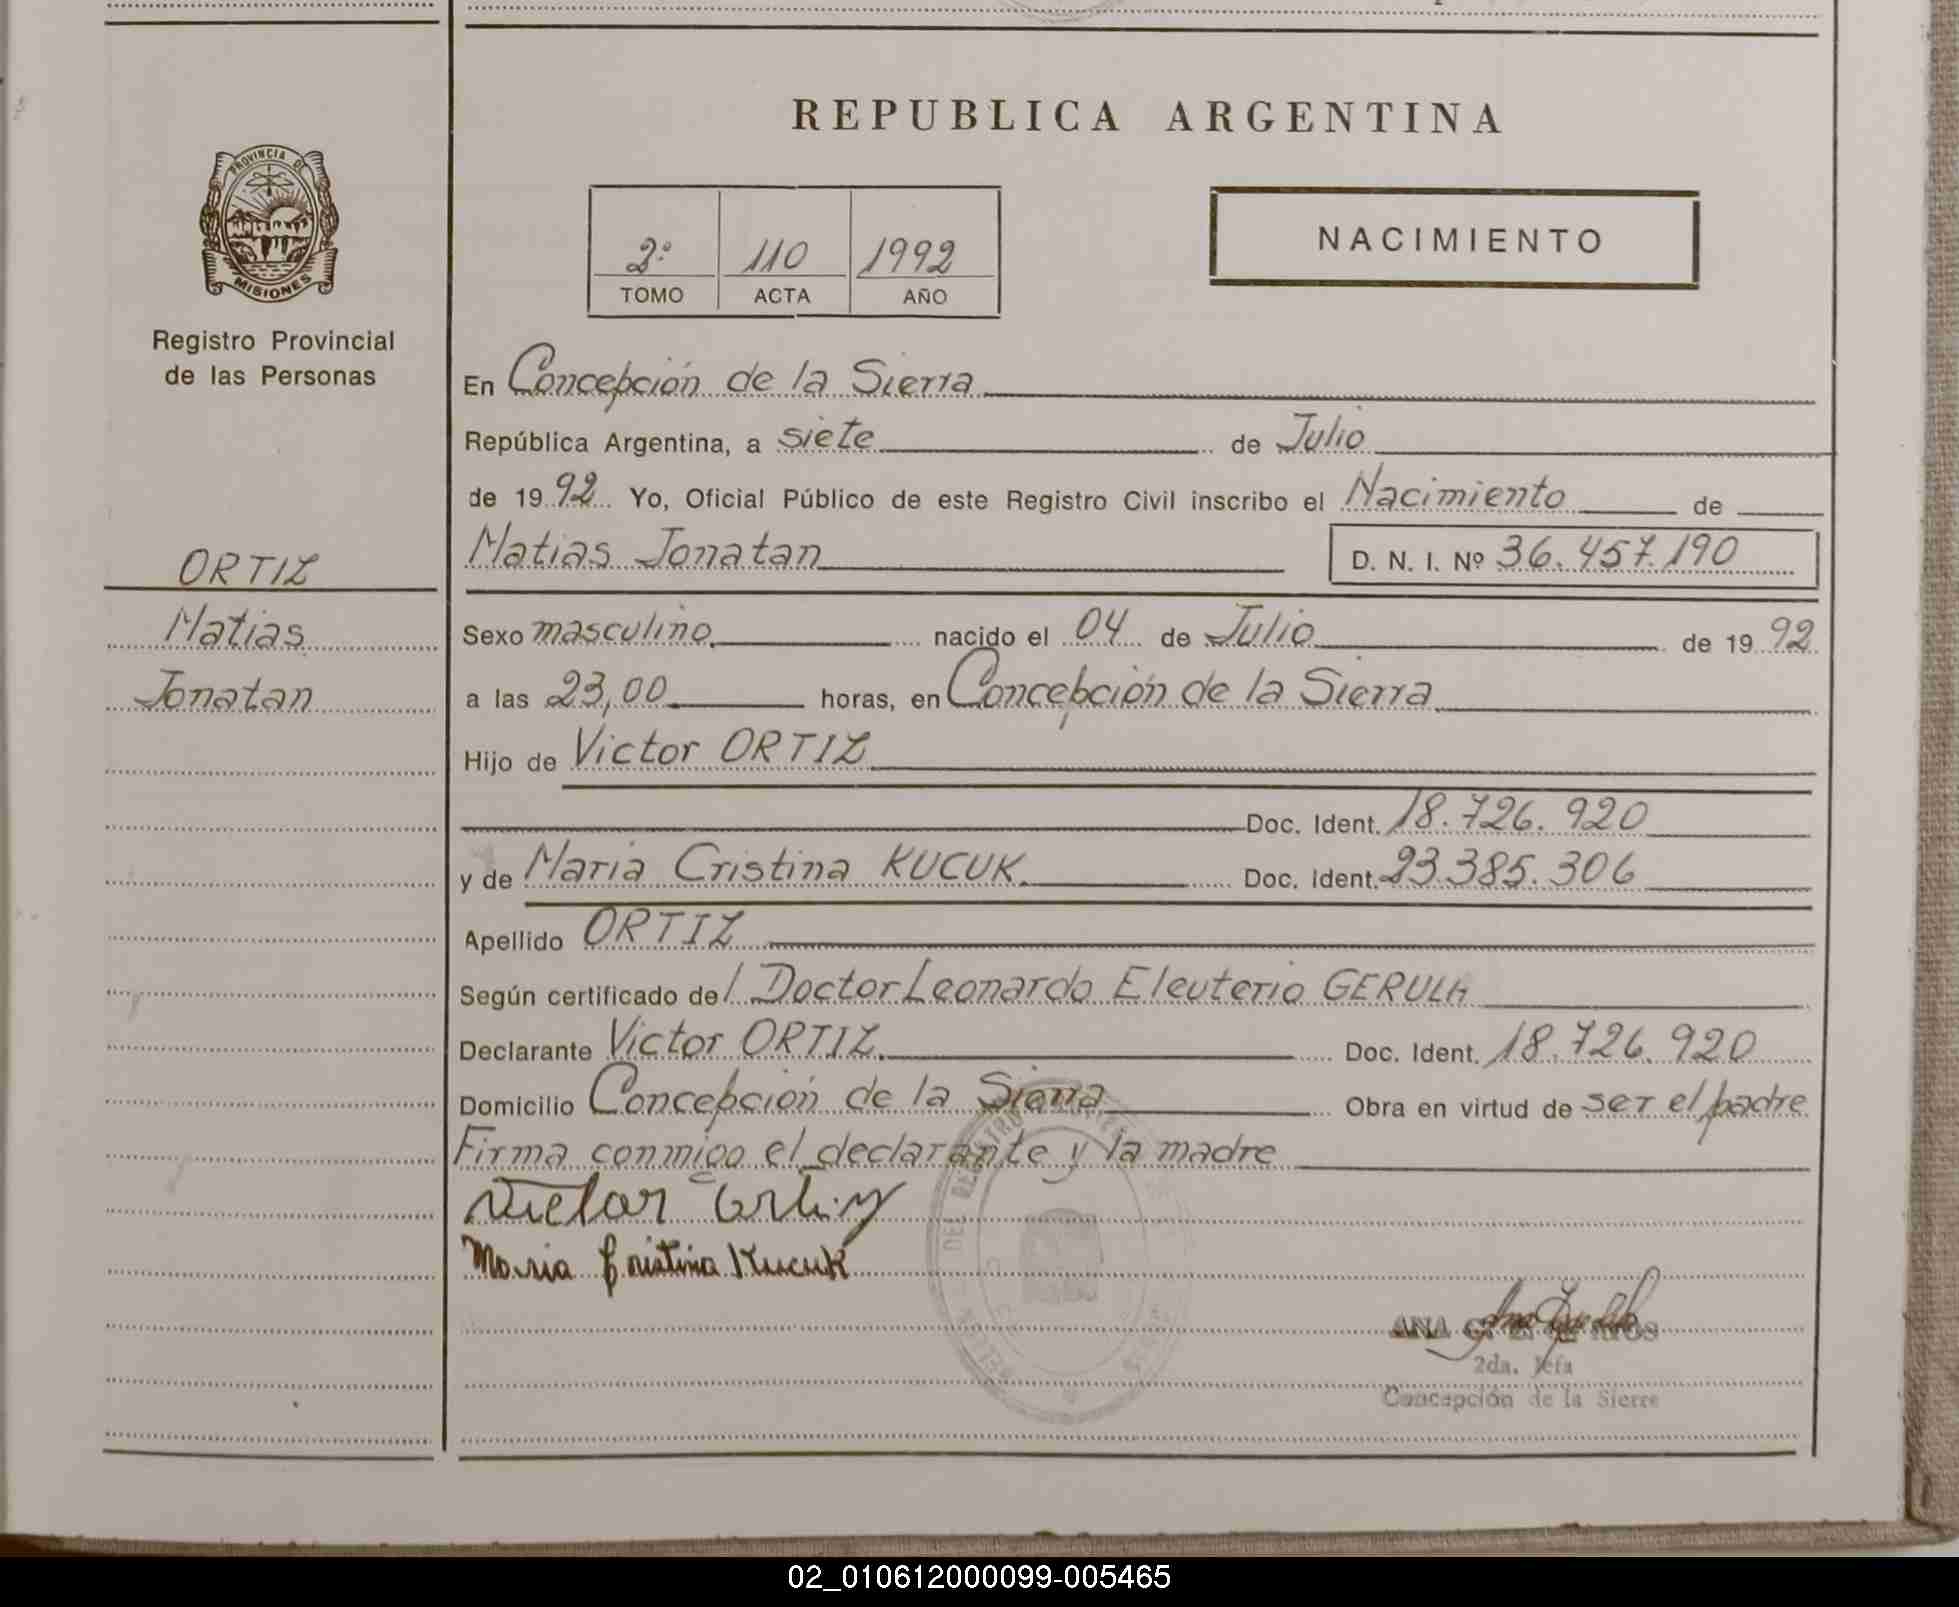 REPUBLICA ARGENTINA
PROVINCIA DE
MISIONES
Registro Provincial
de las Personas
ORTIZ
Matias
Jonatan
2º 110 1992
TOMO ACTA AÑO
NACIMIENTO
En Concepción de la Sierra
República Argentina, a siete de Julio
de 1992 Yo, Oficial Público de este Registro Civil inscribo el Nacimiento de
Matias Jonatan D. N. I. Nº 36.457.190
Sexo masculino nacido el 04 de Julio de 1992
a las 23,00 horas, en Concepción de la Sierra
Hijo de Victor ORTIZ
Doc. Ident. 18.726.920
y de Maria Cristina KUCUK Doc. Ident. 23.385.306
Apellido ORTIZ
Según certificado del Doctor Leonardo Eleuterio GERULA
Declarante Victor ORTIZ Doc. Ident. 18.726.920
Domicilio Concepción de la Sierra Obra en virtud de ser el padre
Firma conmigo el declarante y la madre
Victor Ortiz
Maria Cristina Kucuk
ANA
2da. Jefa
Concepción de la Sierra
02_010612000099-005465